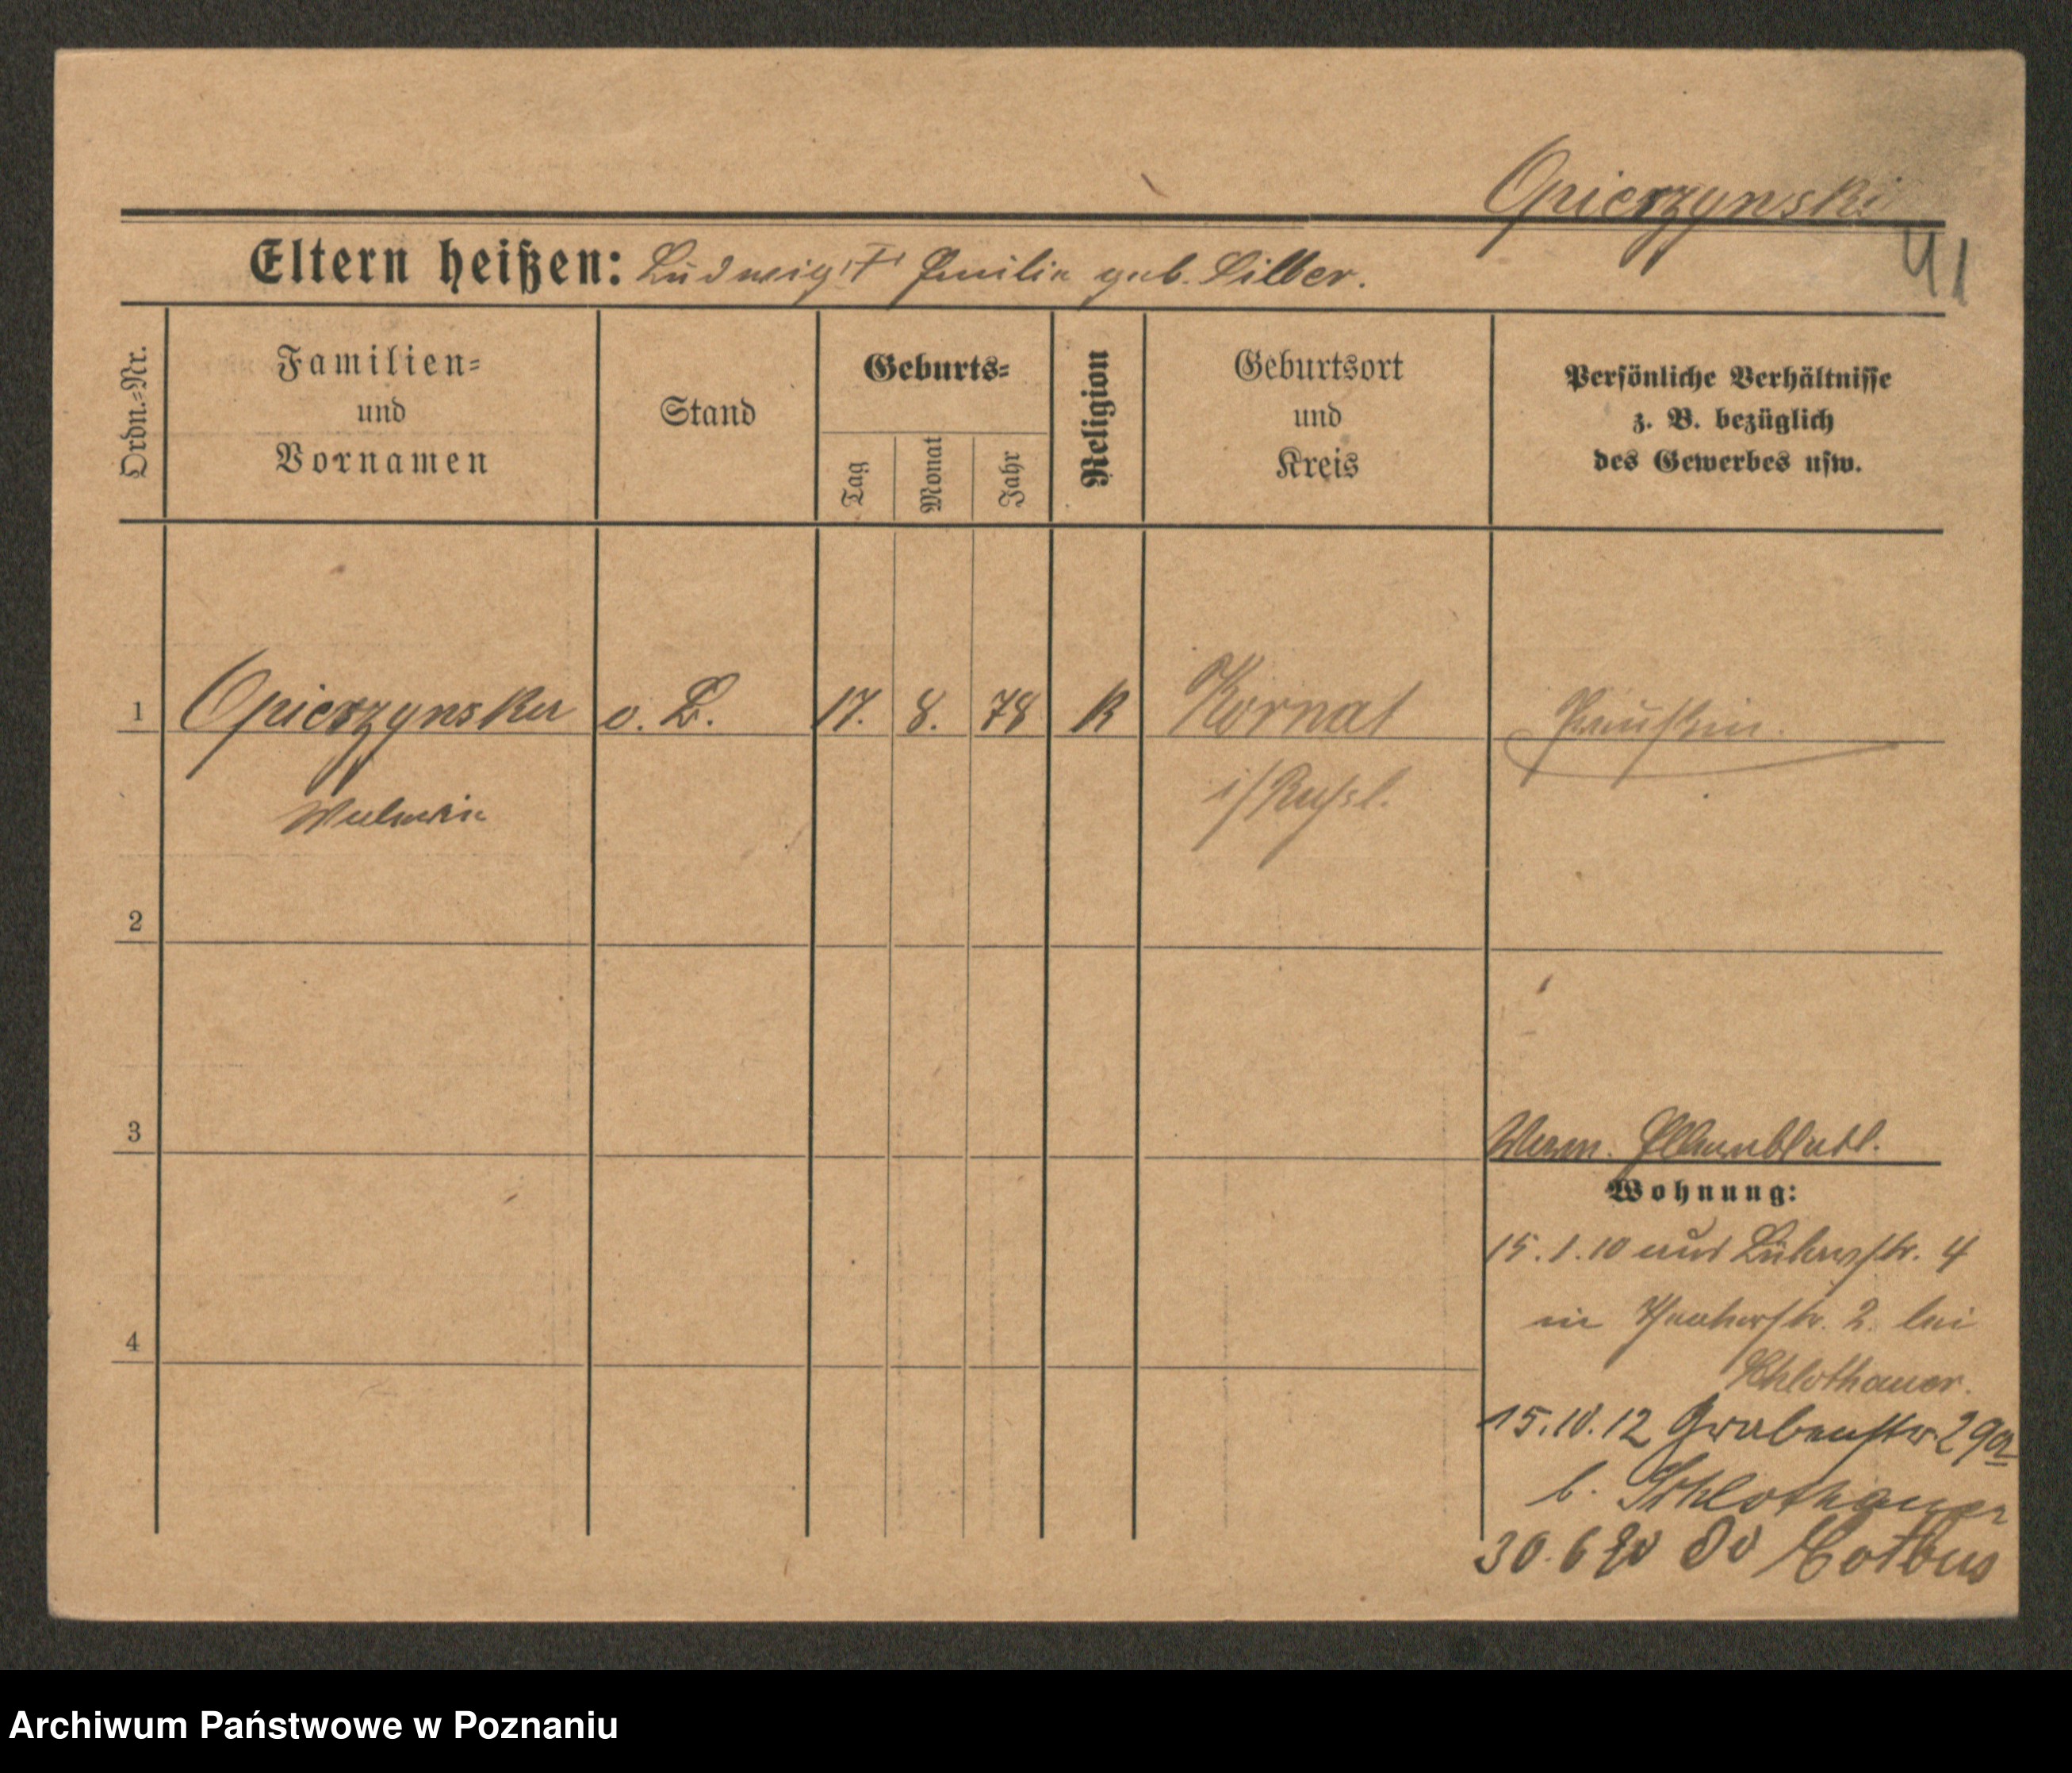 Opierzynski
41
Eltern heißen: Ludwig † Emilie geb. Silber.
Ordn.-Nr.
Familien-
und
Vornamen
Stand
Geburts-
Tag
Monat
Jahr
Religion
Geburtsort
und
Kreis
Persönliche Verhältnisse
z. B. bezüglich
des Gewerbes usw.
1 Opierzynska o. B. 17. 8. 78 K Kornat
i/Russl.
2
3
Wohnung:
15.1.10 aus 4
in 2. bei
Schlothauer.
15.10.12 Grabenstr 29a
b. Schlothauer
30.6 Cotbus
4
Archiwum Państwowe w Poznaniu